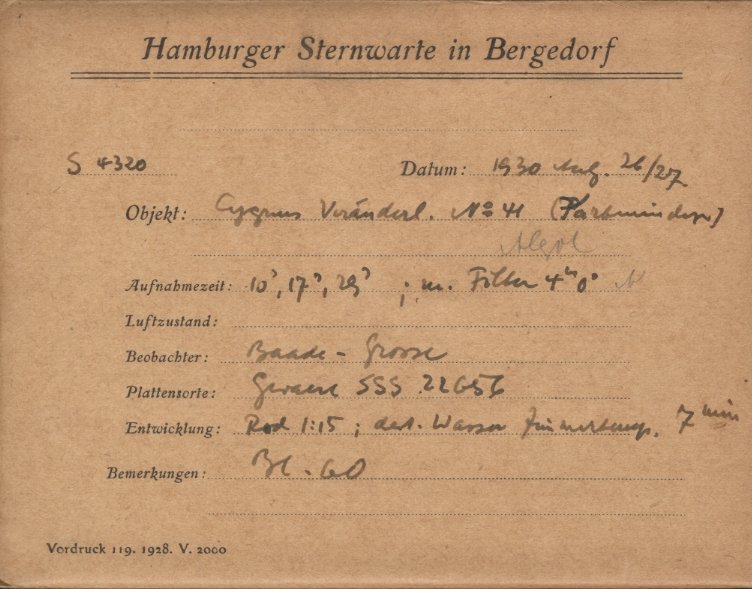 Hamburger Sternwarte in Bergedorf
S 4320 Datum: 1930 Aug. 26/27
Objekt: Cygnus Veränderl. No 41
Algol
Aufnahmezeit: 10, 17, 29 ; m. Filter 4h 0
Luftzustand:
Beobachter: Baade - Grosse
Plattensorte: Gevaert SSS 22656
Entwicklung: Rod 1:15 ; dest. Wasser Zimmertemp. 7 min
Bemerkungen: Bl. 60
Vordruck 119. 1928. V. 2000